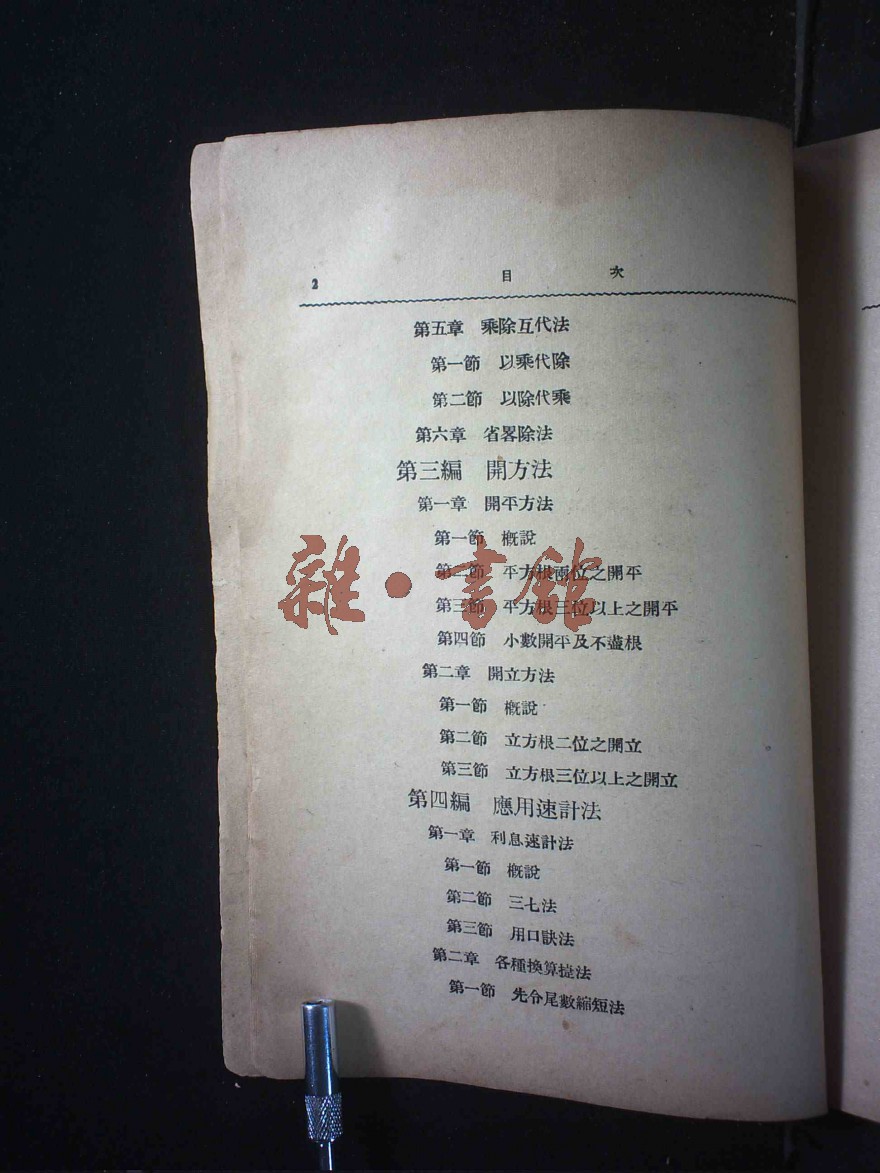 2 目 次
第五章 乘除互代法
第一節 以乘代除
第二節 以除代乘
第六章 省畧除法
第三編 開方法
第一章 開平方法
第一節 概說
第二節 平方根兩位之開平
第三節 平方根三位以上之開平
第四節 小數開平及不盡根
第二章 開立方法
第一節 概說
第二節 立方根二位之開立
第三節 立方根三位以上之開立
第四編 應用速計法
第一章 利息速計法
第一節 概說
第二節 三七法
第三節 用口訣法
第二章 各種換算捷法
第一節 先令尾數縮短法
雜·書館